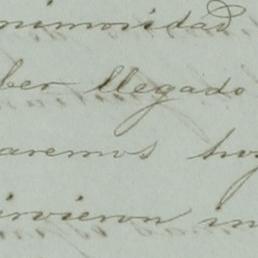 nimosidad
ber llegado
aremos hoy
irvieron in